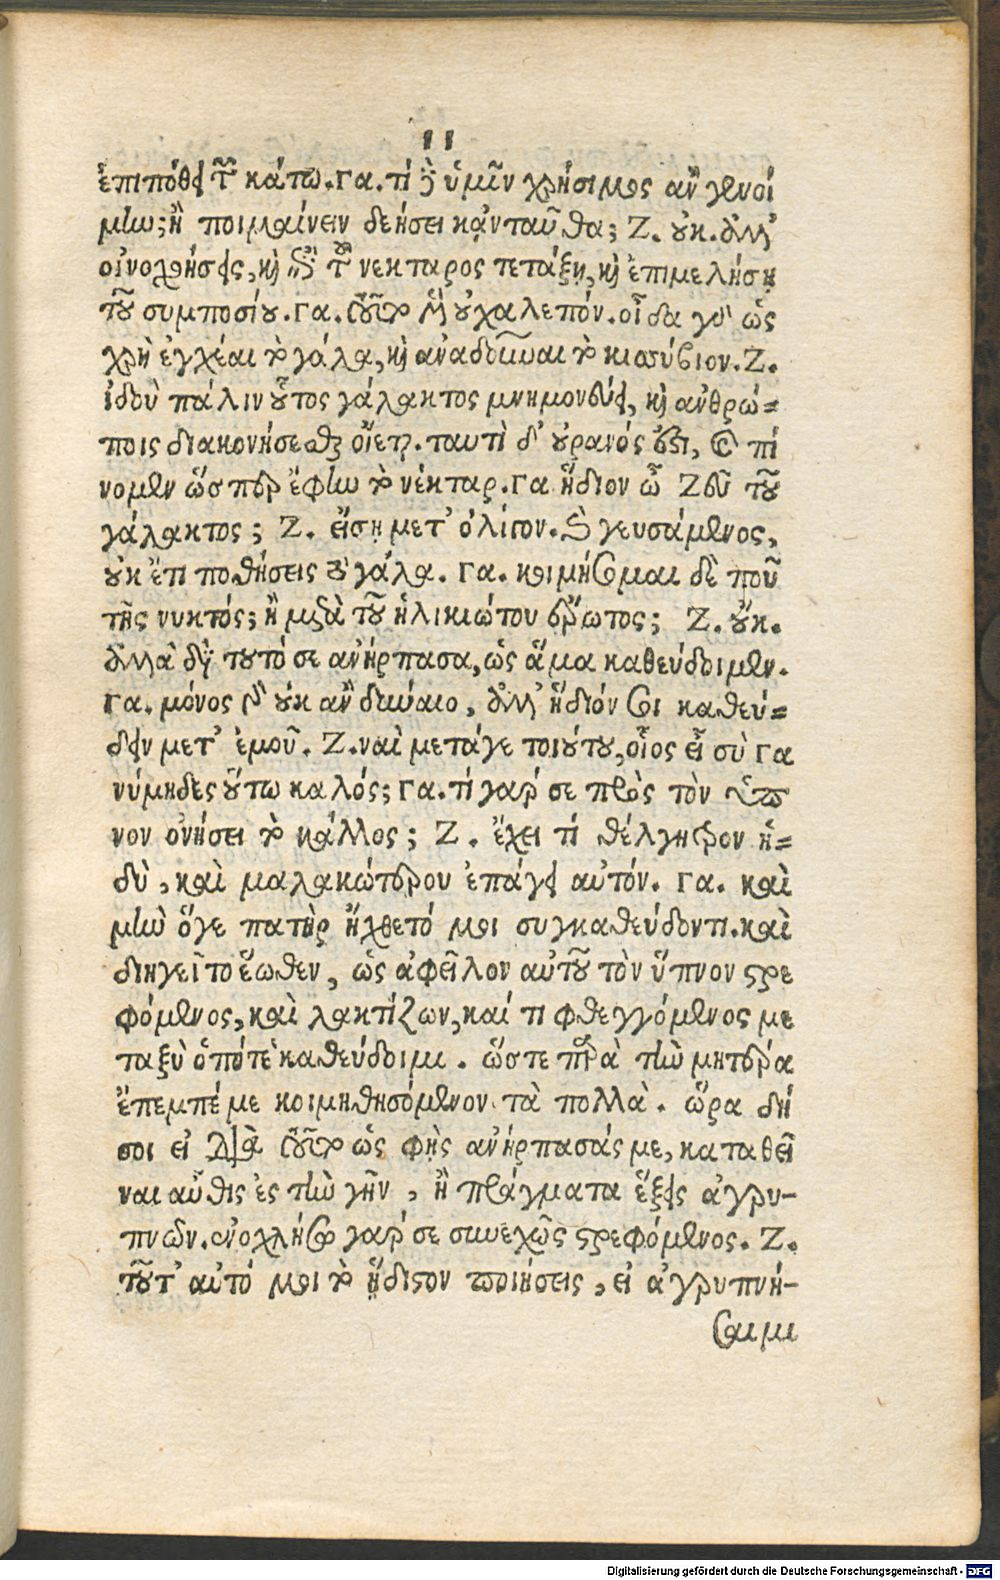 11
ἐπιπόθει τῶν κάτω. γα. τί δὲ ὑμῖν χρήσιμος ἂν γενοί
μην; ἢ ποιμαίνειν δεήσει κἀνταῦθα; Ζ. οὐκ. ἀλλ'
οἰνοχοήσεις, καὶ ἐπὶ τοῦ νέκταρος τετάξῃ, καὶ ἐπιμελήσῃ
τοῦ συμποσίου. γα. τοῦτο μὲν οὐ χαλεπόν. οἶδα γὰρ ὡς
χρὴ ἐγχέαι τὸ γάλα, καὶ ἀναδοῦναι τὸ κισσύβιον. Ζ.
ἰδοὺ πάλιν οὗτος γάλακτος μνημονεύει, καὶ ἀνθρώ=
ποις διακονήσεσθαι οἴεται. ταυτὶ δ' οὐρανός ἐστι, καὶ πί
νομεν ὥσπερ ἔφην τὸ νέκταρ. γα ἥδιον ὦ Ζεῦ τοῦ
γάλακτος; Ζ. εἴσῃ μετ' ὀλίγον. καὶ γευσάμενος,
οὐκ ἔτι ποθήσεις τὸ γάλα. γα. κοιμήσομαι δὲ ποῦ
τῆς νυκτός; ἢ μετὰ τοῦ ἡλικιώτου ἔρωτος; Ζ. οὔκ.
ἀλλὰ διὰ τοῦτό σε ἀνήρπασα, ὡς ἅμα καθεύδοιμεν.
γα. μόνος γὰρ οὐκ ἂν δύναιο, ἀλλ' ἥδιόν σοι καθεύ=
δειν μετ' ἐμοῦ. Ζ. ναὶ μετάγε τοιούτου, οἷος εἶ σὺ γα
νύμηδες οὕτω καλός; γα. τί γάρ σε πρὸς τὸν ὕπ
νον ὀνήσει τὸ κάλλος; Ζ. ἔχει τί θέλγητρον ἡ=
δὺ, καὶ μαλακώτερον ἐπάγει αὐτόν. γα. καὶ
μὴν ὅγε πατὴρ ἤχθετό μοι συγκαθεύδοντι. καὶ
διηγεῖτο ἕωθεν, ὡς ἀφεῖλον αὐτοῦ τὸν ὕπνον στρε
φόμενος, καὶ λακτίζων, καί τι φθεγγόμενος με
ταξὺ ὁπότε καθεύδοιμι. ὥστε παρὰ τὴν μητέρα
ἔπεμπέ με κοιμηθησόμενον τὰ πολλὰ. ὥρα δή
σοι εἰ διὰ τοῦτο ὡς φῂς ἀνήρπασάς με, καταθεῖ
ναι αὖθις ἐς τὴν γῆν, ἢ πράγματα ἕξεις ἀγρυ-
πνῶν. ἐνοχλήσω γάρ σε συνεχῶς στρεφόμενος. Ζ.
τοῦτ' αὐτό μοι τὸ ἥδιστον ποιήσεις, εἰ ἀγρυπνή-
σαιμι
Digitalisierung gefördert durch die Deutsche Forschungsgemeinschaft - DFG